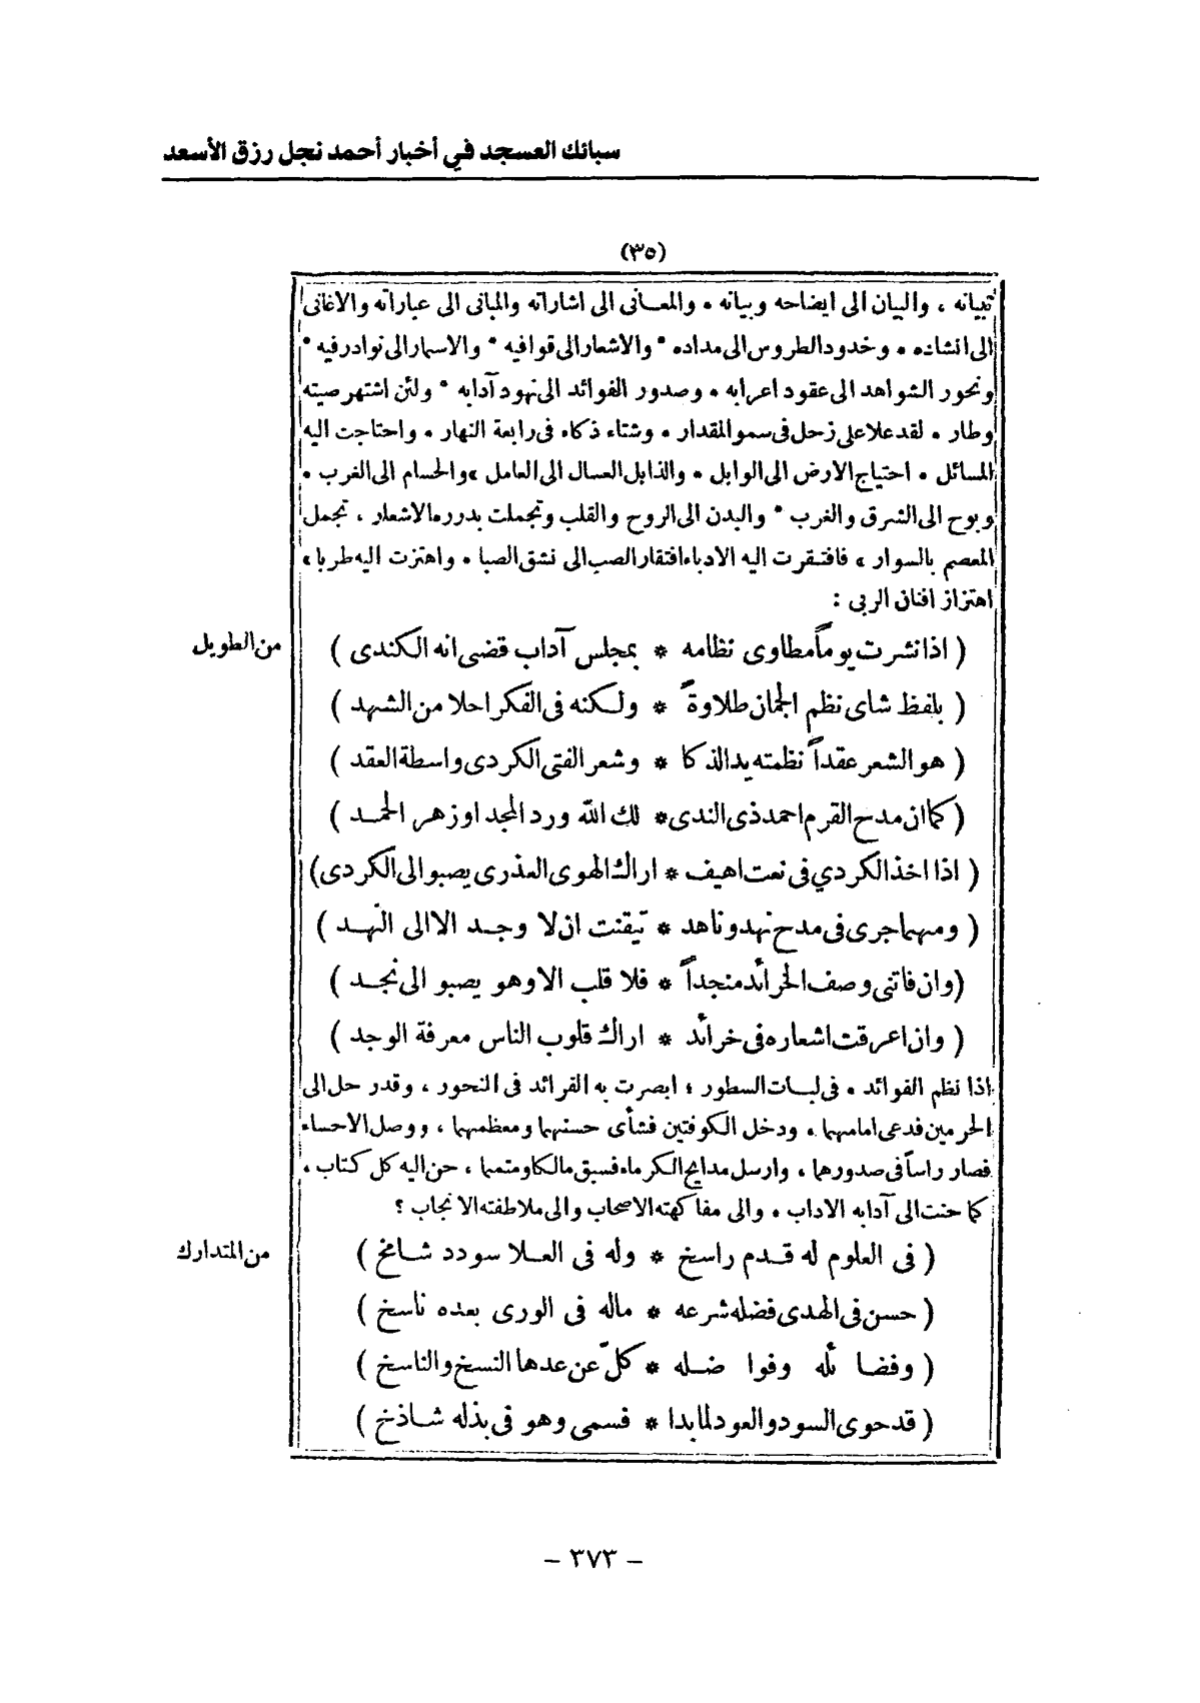 سبائك العسجد في أخبار أحمد نجل رزق الأسعد
(٣٥)
تبيانه ، والبيان الى ايضاحه وبيانه • والمعانى الى اشاراته والمبانى الى عباراته والاغانى
الى انشاده • وخدود الطروس الى مداده • والاشعار الى قوافيه • والاسمار الى نوادر فيه •
ونحور الشواهد الى عقود اعرابه • وصدور الفوائد الى نهود آدابه • ولئن اشتهر صيته
وطار • لقد علا على زحل فى سمو المقدار • وشتاء ذكاء فى رابعة النهار • واحتاجت اليه
المسائل • احتياج الارض الى الوابل • والذابل العسال الى العامل ، والحسام الى الغرب •
وبوح الى الشرق والغرب • والبدن الى الروح والقلب وتجملت بدرره الاشعار ، تجمل
المعصم بالسوار ، فافتقرت اليه الادباء افتقار الصب الى نشق الصبا • واهتزت اليه طربا ،
اهتزاز افنان الربى :
( اذا نشرت يوماً مطاوى نظامه * بمجلس آداب قضى انه الكندى ) من الطويل
( بلفظ شاى نظم الجمان طلاوةً * ولكنه فى الفكر احلا من الشهد )
( هو الشعر عقداً نظمته يد الذكا * وشعر الفتى الكردى واسطة العقد )
( كما ان مدح القرم احمد ذى الندى * لك الله ورد المجد او زهر الحمد )
( اذا اخذ الكردي فى نعت اهيف * اراك الهوى العذرى يصبو الى الكردى )
( ومهما جرى فى مدح نهد وناهد * تيقنت ان لا وجد الا الى النهد )
( وان فاتنى وصف الخرائد منجداً * فلا قلب الا وهو يصبو الى نجد )
( وان اعرقت اشعاره فى خرائد * اراك قلوب الناس معرفة الوجد )
اذا نظم الفوائد • فى لبات السطور ؛ ابصرت به الفرائد فى النحور ، وقدر حل الى
الحرمين فدعى امامهما • ودخل الكوفتين فشأى حسنهما ومعظمهما ، ووصل الاحساء
فصار راساً فى صدورها ، وارسل مدايح الكرماء فسبق مالكا ومتمما ، حن اليه كل كتاب ،
كما حنت الى آدابه الاداب • والى مفاكهته الاصحاب والى ملاطفته الانجاب ؟
( فى العلوم له قدم راسخ * وله فى العلا سودد شامخ ) من المتدارك
( حسن فى الهدى فضله شرعه * ماله فى الورى بعده ناسخ )
( وفضا ئله وفوا ضله * كلّ عن عدها النسخ والناسخ )
( قد حوى السودد والعود لما بدا * فسمى وهو فى بذله شاذخ )
– ٣٧٣ –